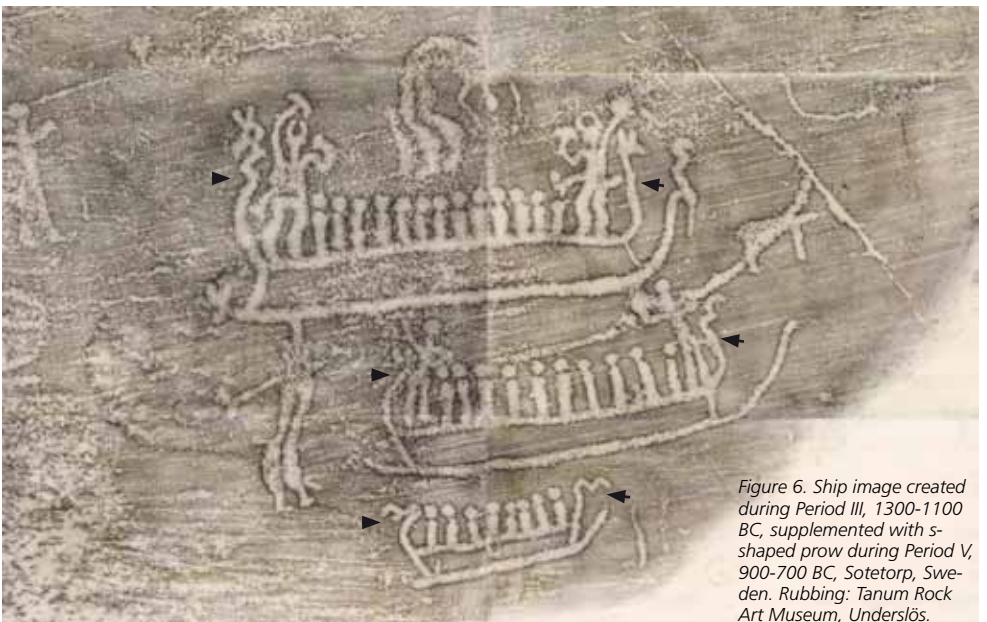 Figure 6. Ship image created
during Period III, 1300-1100
BC, supplemented with s-
shaped prow during Period V,
900-700 BC, Sotetorp, Swe-
den. Rubbing: Tanum Rock
Art Museum, Underslös.